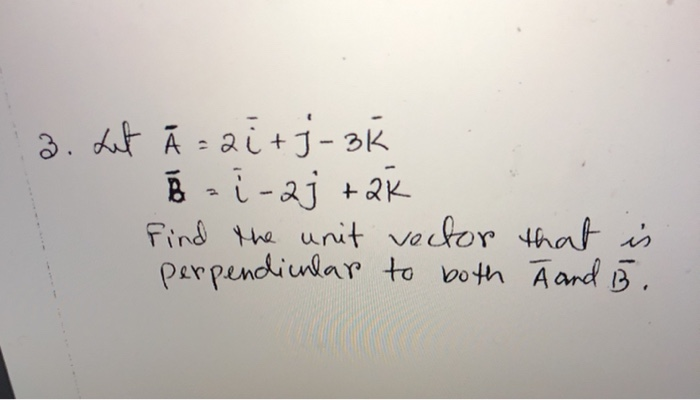 3. Let Ā = 2ī + j - 3k̄
B̄ = ī - 2j + 2k̄
Find the unit vector that is
perpendicular to both Ā and B̄.